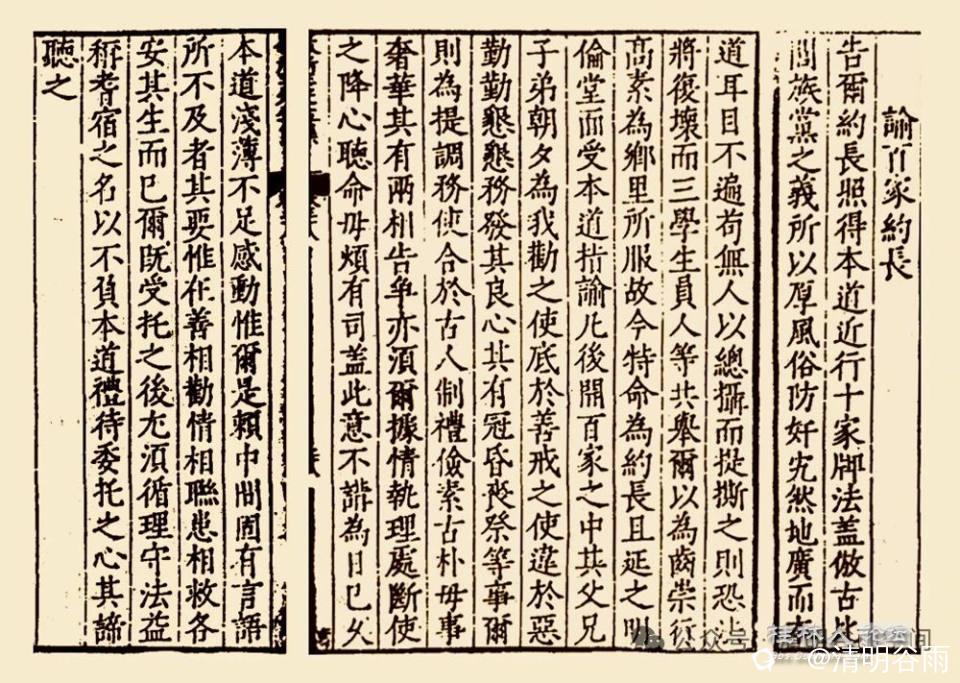 諭百家約長
告爾約長照得本道近行十家牌法盖倣古比
閭族黨之義所以厚風俗防奸宄然地廣而本
道耳目不遍苟無人以總攝而提撕之則恐法
將復壞而三學生員人等共舉爾以為齒崇行
高素為鄉里所服故今特命為約長且延之明
倫堂而受本道指諭凡後開百家之中其父兄
子弟朝夕為我勸之使底於善戒之使違於惡
勤勤懇懇務發其良心其有冠昏喪祭等事爾
則為提調務使合於古人制禮儉素古朴毋事
奢華其有兩相告爭亦須爾據情執理處斷使
之降心聽命毋煩有司盖此意不講為日已久
本道淺薄不足感動惟爾是賴中間固有言語
所不及者其要惟在善相勸情相聯患相救各
安其生而已爾既受托之後尤須循理守法益
稱耆宿之名以不負本道禮待委托之心其諦
聽之
公众号
桂林人论坛
@清明谷雨